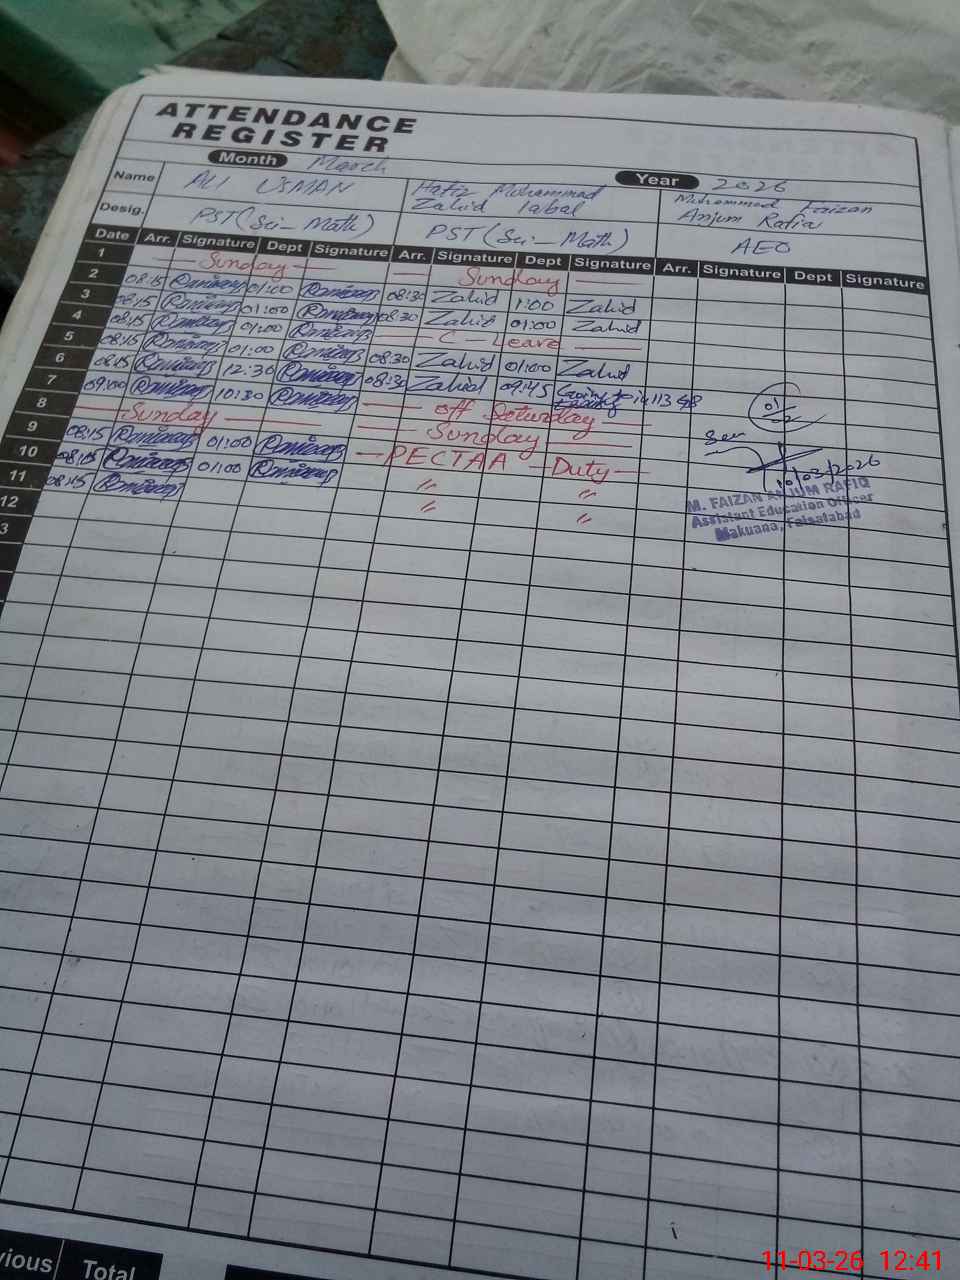 ATTENDANCE
REGISTER
Month March
Year 2026
Name ALI USMAN Hafiz Mohammad Zahid Iqbal Muhammad Faizan Anjum Rafiq
Desig. PST (Sci-Math) PST (Sci-Math) AEO
Date Arr. Signature Dept Signature Arr. Signature Dept Signature Arr. Signature Dept Signature
1 Sunday Sunday
2 08:15 01:00 08:30 Zahid 1:00 Zahid
3 08:15 01:00 08:30 Zahid 01:00 Zahid
4 08:15 01:00 C-Leave
5 08:15 01:00 08:30 Zahid 01:00 Zahid
6 08:15 12:30 08:30 Zahid 09:45
7 09:00 10:30 off Saturday
8 Sunday Sunday
9 08:15 01:00 PECTAA Duty
10 08:15 01:00 〃 〃
11 08:15 〃 〃
12
3
01
10/03/2026
M. FAIZAN ANJUM RAFIQ
Assistant Education Officer
Makuana, Faisalabad
vious Total
11-03-26 12:41